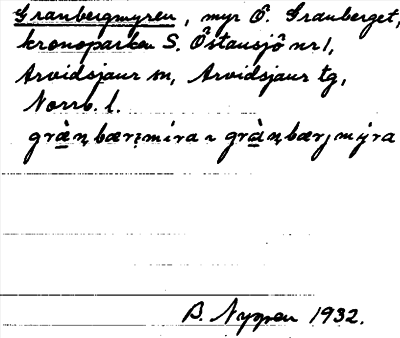 Granbergmyren, myr Ö. Granberget,
kronoparken S. Östansjö nr 1,
Arvidsjaur sn, Arvidsjaur tg,
Norrb. l.
grànbærmira ~ grànbærjmyra
B. Nygren 1932.